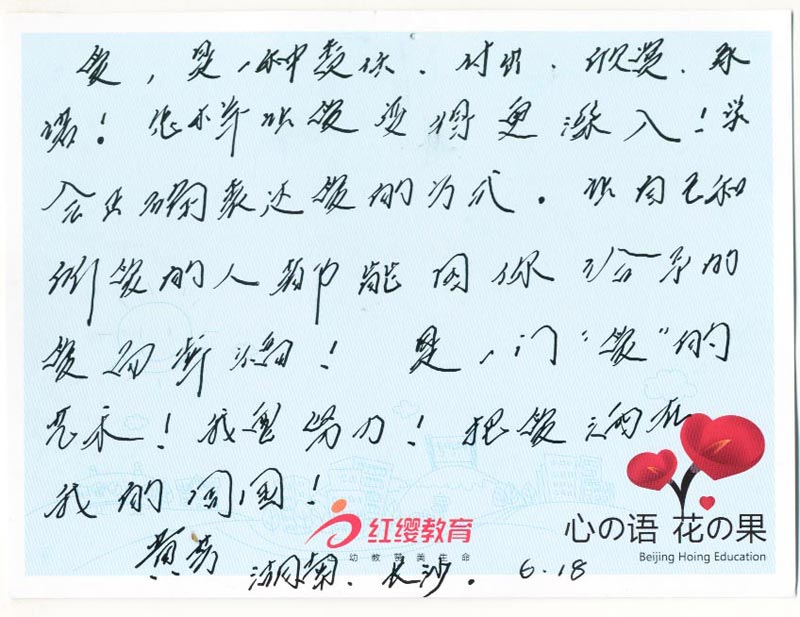 爱，是一种责任、付出、欣赏、承
诺！怎样让爱变得更深入！学
会正确表达爱的方式。让自己和
所爱的人都能因你给予的
爱而幸福！是一门“爱”的
艺术！我会努力！把爱洒在
我的周围！
红缨教育
幼教 美 生命
心の语 花の果
Beijing Hoing Education
黄芳
湖南、长沙。 6.18